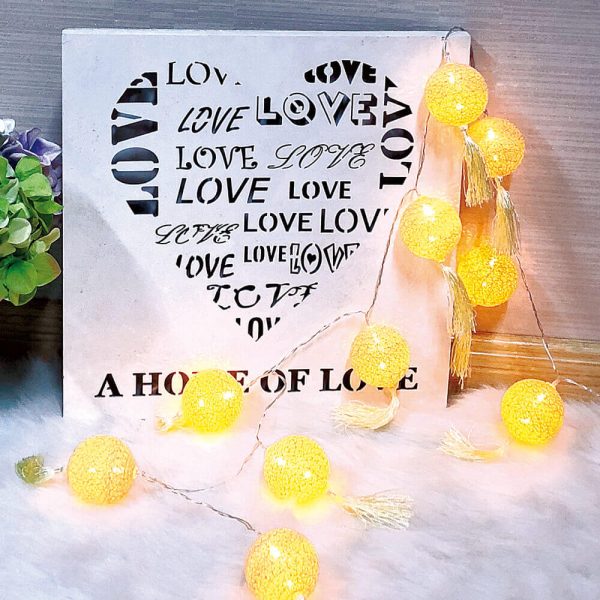 LOVE LOVE
LOVE LOVE LOVE LOVE
LOVE LOVE
LOVE LOVE
LOVE LOVE LOVE
LOVE LOVE LOVE
LOVE
LOV
A HOME OF LOVE